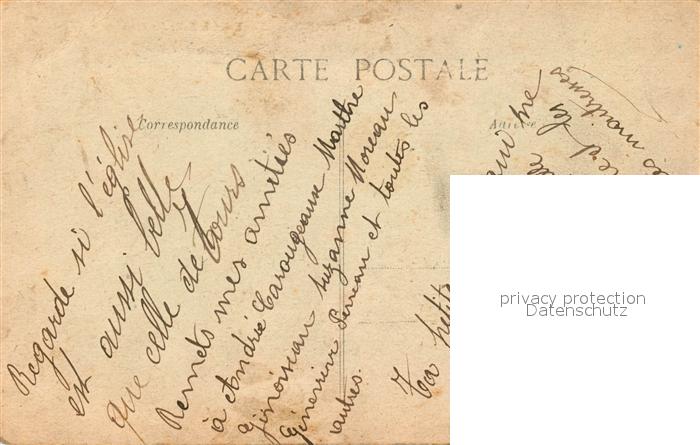 CARTE POSTALE
Correspondance
Adresse
Regarde si l'église
est aussi belle
que celle de Tours
Remets mes amitiés
à Andrée Carougeaux Marthe
Ginoiseau Suzanne Moreau
Perreau et toutes les
autres.
Ta petite
privacy protection
Datenschutz